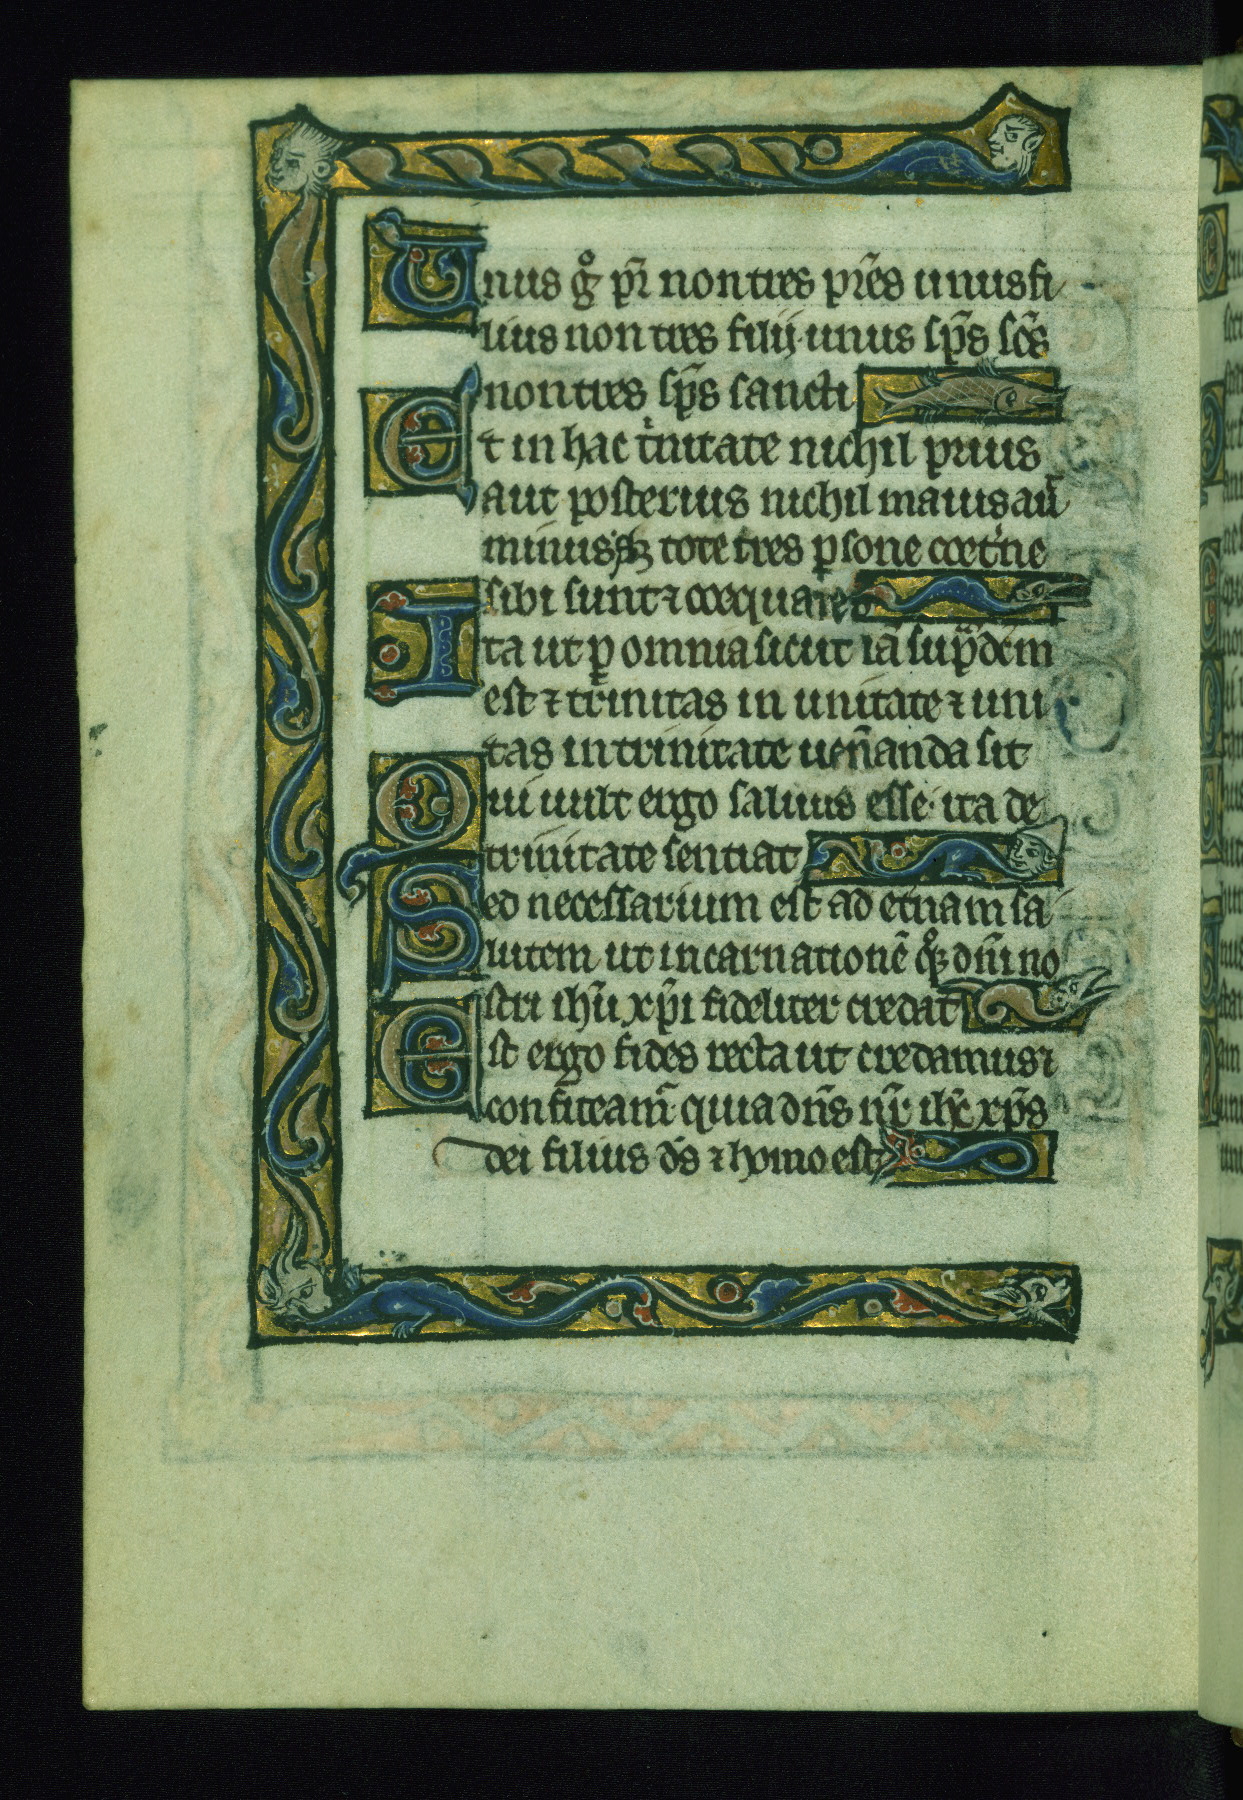 Unus gͦ pr̄ non tres pr̄es unus fi
lius non tres filij. unus sp̄s sc̄s
non tres sp̄s sancti
Et in hac tͥnitate nichil prius
aut posterius nichil maius aū
minus. sꝫ tote tres ꝑsone coet̾ne
sibi sunt ⁊ coequales
Ita ut ꝑ omnia sicut iā sup̄ dcm̄
est ⁊ trinitas in unitate ⁊ uni
tas in trinitate uen̄anda sit
Qui uult ergo saluus esse. ita de
trinitate sentiat
Sed necessarium est ad et̾nam sa
lutem ut incarnationē qͦꝫ dn̄i no
stri ihū xp̄i fideliter credat
Est ergo fides recta ut credamus ⁊
confiteam̾ quia dn̄s nr̄ ihc̄ xp̄s
dei filius ds̄ ⁊ homo est